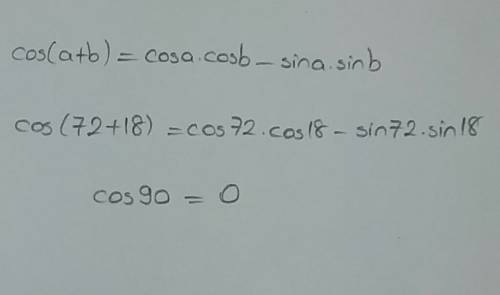 cos(a+b) = cosa.cosb - sina.sinb
cos(72+18) = cos72.cos18 - sin72.sin18
cos90 = 0